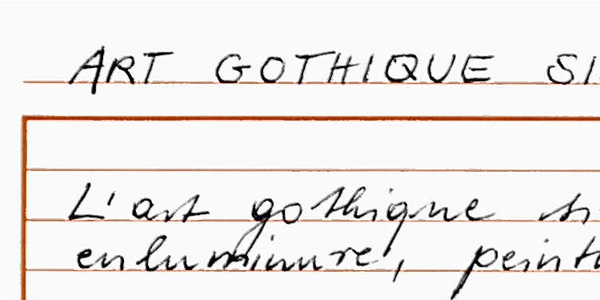 ART GOTHIQUE SI
L'art gothique s
enluminure, peint